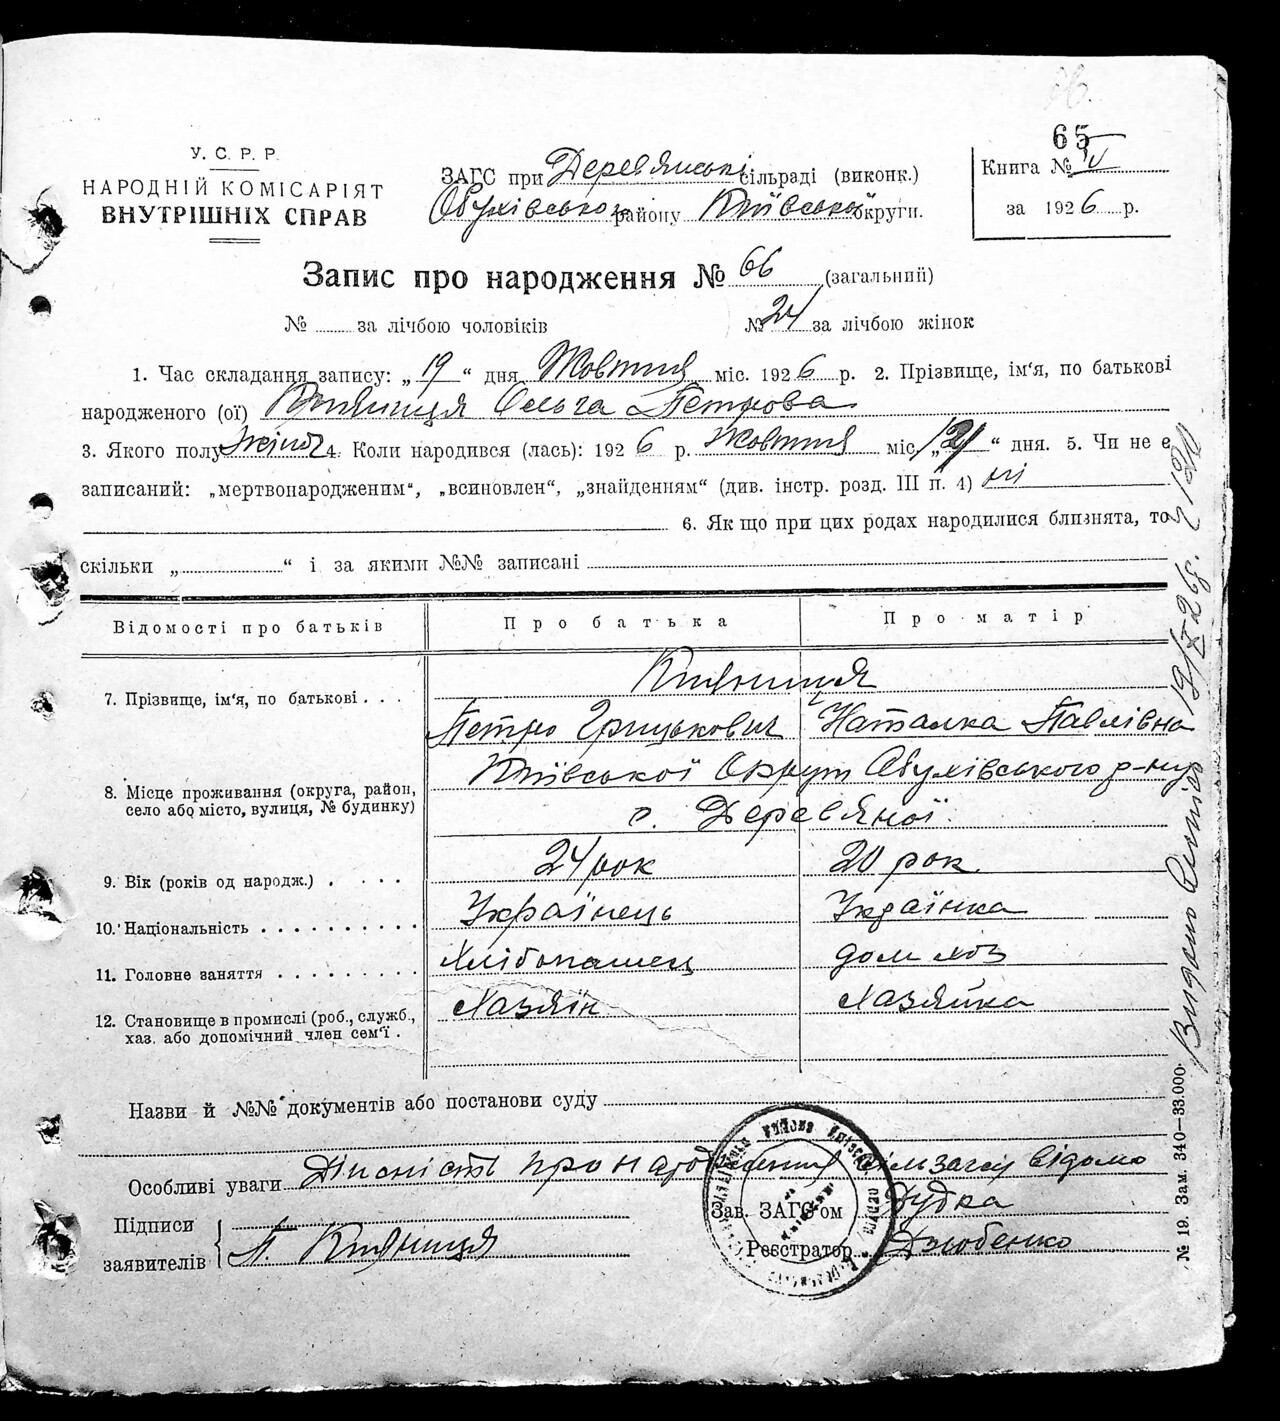 65
У. С. Р. Р.
НАРОДНІЙ КОМІСАРІЯТ
ВНУТРІШНІХ СПРАВ
ЗАГС при Деревянські сільраді (виконк.)
Обухівського району Київської округи.
Книга № IV
за 1926 р.
Запис про народження № 66 (загальний)
№ за лічбою чоловіків № 24 за лічбою жінок
1. Час складання запису: „19“ дня Жовтня міс. 1926 р. 2. Прізвище, ім'я, по батькові
народженого (ої) Кпяниця Ольга Петрова
3. Якого полу жіноч 4. Коли народився (лась): 1926 р. Жовтня міс. „ “ дня. 5. Чи не є
записаний: „мертвонародженим“, „всиновлен“, „знайденням“ (див. інстр. розд. III п. 4) ні
6. Як що при цих родах народилися близнята, то
скільки „ “ і за якими №№ записані
Відомості про батьків Про батька Про матір
7. Прізвище, ім'я, по батькові . . . Кпяниця
Петро Грицькович Наталка Павлівна
8. Місце проживання (округа, район, село або місто, вулиця, № будинку) Київської Округи Обухівського р-ну
с. Деревяної.
9. Вік (років од народж.) . . . . 24 рок 20 рок
10. Національність . . . . . . . . . . Українець Українка
11. Головне заняття . . . . . . . . . Хлібопашец дом хоз
12. Становище в промислі (роб., служб., хаз. або допомічний член сем'ї . Хазяїн Хазяйка
Назви й №№ документів або постанови суду
Особливі уваги Дійсність про народження відомо
Підписи
заявителів П. Кпяниця
Зав. ЗАГС'ом Дудка
Реєстратор Дзюбенко
№ 19. Зам. 340—33.000.
Видано